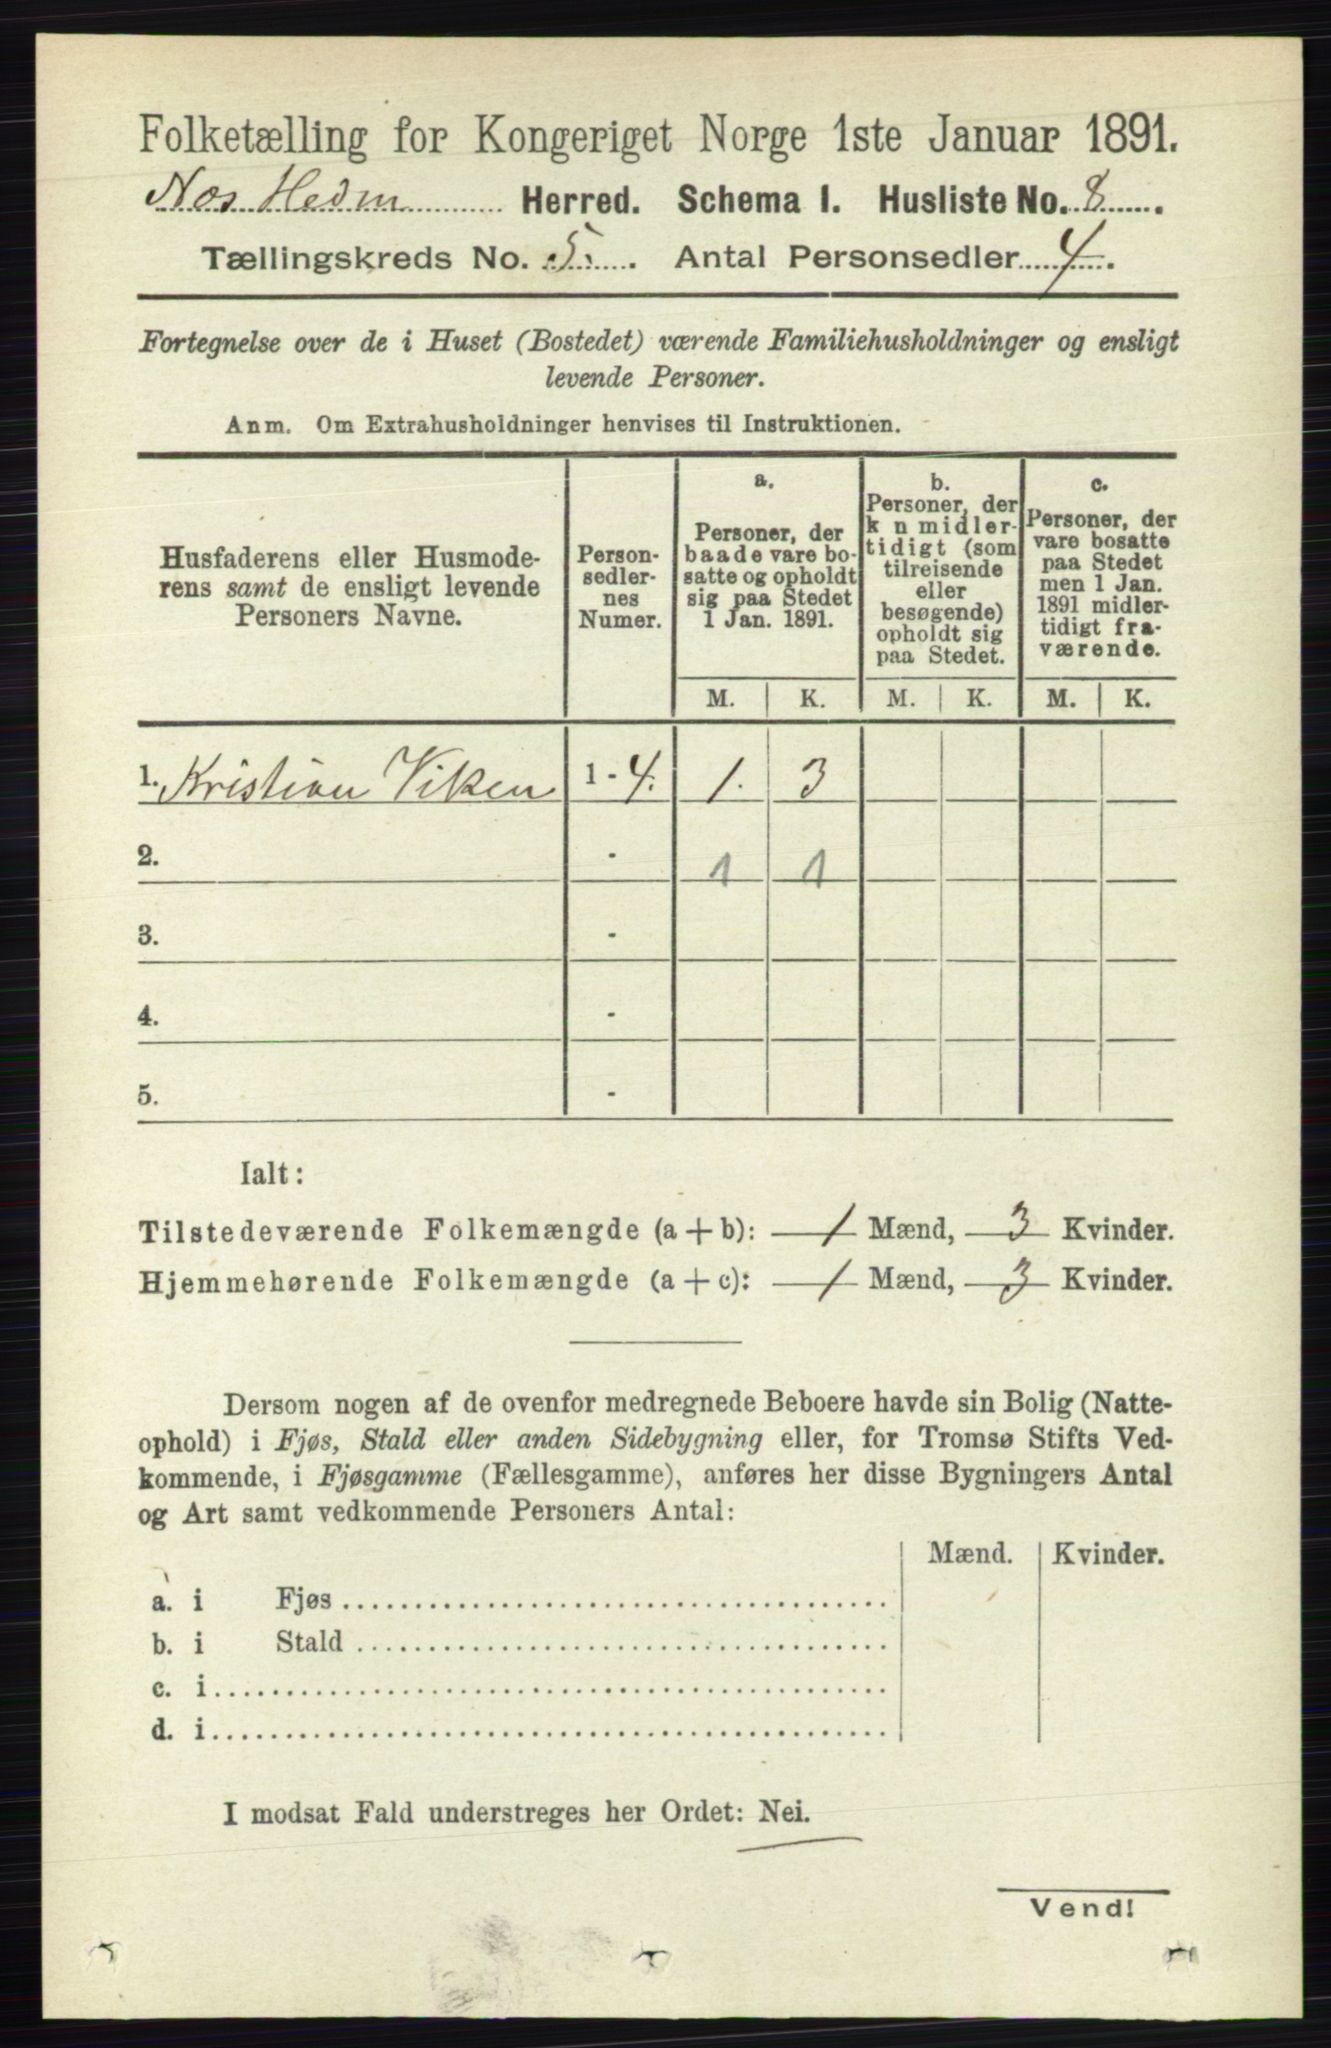 Folketælling for Kongeriget Norge 1ste Januar 1891.
Nes Hedm Herred. Schema 1. Husliste No. 8.
Tællingskreds No. 5. Antal Personsedler 4.
Fortegnelse over de i Huset (Bostedet) værende Familiehusholdninger og ensligt
levende Personer.
Anm. Om Extrahusholdninger henvises til Instruktionen.
Husfaderens eller Husmode-
rens samt de ensligt levende
Personers Navne.
Person-
sedler-
nes
Numer.
a.
Personer, der
baade vare bo-
satte og opholdt
sig paa Stedet
1 Jan. 1891.
b.
Personer, der
k n midler-
tidigt (som
tilreisende
eller
besøgende)
opholdt sig
paa Stedet.
c.
Personer, der
vare bosatte
paa Stedet
men 1 Jan.
1891 midler-
tidigt fra-
værende.
M. K. M. K. M. K.
1. Kristian Viken 1 - 4. 1. 3
2. - 1 1
3. -
4. -
5. -
Ialt:
Tilstedeværende Folkemængde (a + b): 1 Mænd, 3 Kvinder.
Hjemmehørende Folkemængde (a + c): 1 Mænd, 3 Kvinder.
Dersom nogen af de ovenfor medregnede Beboere havde sin Bolig (Natte-
ophold) i Fjøs, Stald eller anden Sidebygning eller, for Tromsø Stifts Ved-
kommende, i Fjøsgamme (Fællesgamme), anføres her disse Bygningers Antal
og Art samt vedkommende Personers Antal:
Mænd. Kvinder.
a. i Fjøs
b. i Stald
c. i
d. i
I modsat Fald understreges her Ordet: Nei.
Vend!